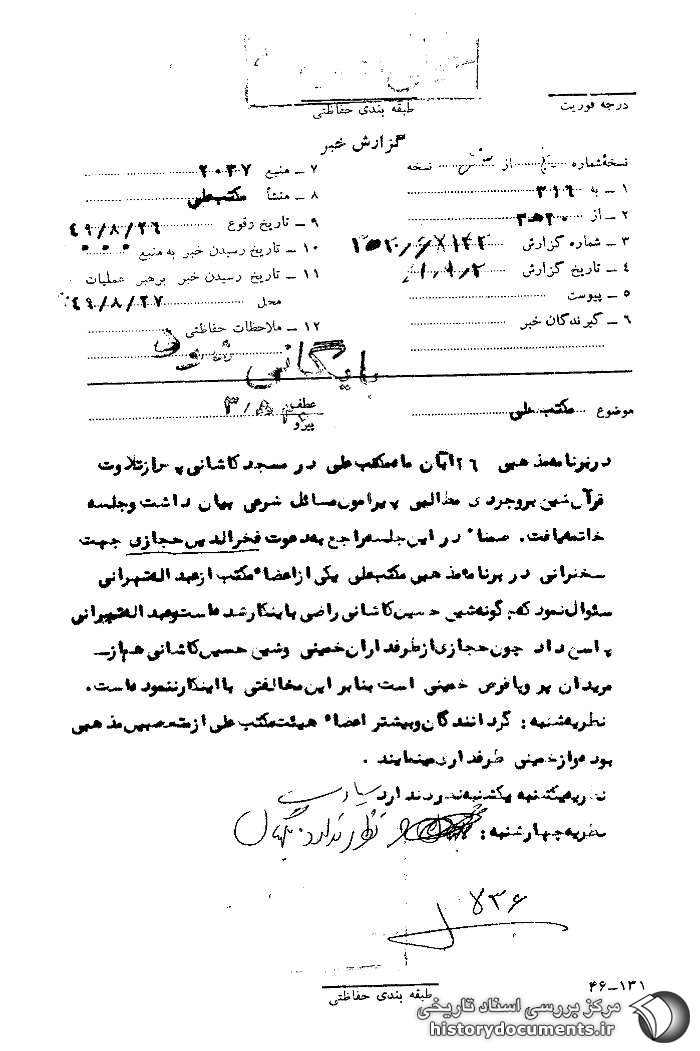 طبقه بندی حفاظتی
درجه فوریت
گزارش خبر
نسخهٔ شماره از نسخه
۱ ـ به ۳۱۶
۲ ـ از ۲۰ه۳
۳ ـ شماره گزارش
۴ ـ تاریخ گزارش
۵ ـ پیوست
۶ ـ گیرندگان خبر
۷ ـ منبع ۲۰۳۷
۸ ـ منشأ مکتب علی
۹ ـ تاریخ وقوع ۴۹/۸/۲۶
۱۰ ـ تاریخ رسیدن خبر به منبع
۱۱ ـ تاریخ رسیدن خبر برهبر عملیات
محل ۴۹/۸/۲۷
۱۲ ـ ملاحظات حفاظتی
بایگانی شود
موضوع مکتب علی
عطف
پیرو
در برنامه مذهبی ۲۶ آبان ماه مکتب علی در مسجد کاشانی پس از تلاوت
قرآن شیخ بروجردی مطالبی پیرامون مسائل شرعی بیان داشت و جلسه
خاتمه یافت. ضمنا" در این جلسه راجع به دعوت فخرالدین حجازی جهت
سخنرانی در برنامه مذهبی مکتب علی یکی از اعضاء مکتب از عبد اله تهرانی
سئوال نمود که چگونه شیخ حسین کاشانی راضی باینکار شده است و عبد اله تهرانی
پاسخ داد چون حجازی از طرفداران خمینی و شیخ حسین کاشانی هم از ـ
مریدان پر و پا قرص خمینی است بنابر این مخالفتی با اینکار ننموده است.
نظریه شنبه : گردانندگان و بیشتر اعضاء هیئت مکتب علی از متعصبین مذهبی
بوده و از خمینی طرفداری مینمایند .
نظریه یکشنبه یکشنبه نظری ندارد
نظریه چهارشنبه : نظری ندارد.
۷۸۳۶
طبقه بندی حفاظتی
۴۶-۱۳۱
مرکز بررسی اسناد تاریخی
historydocuments.ir